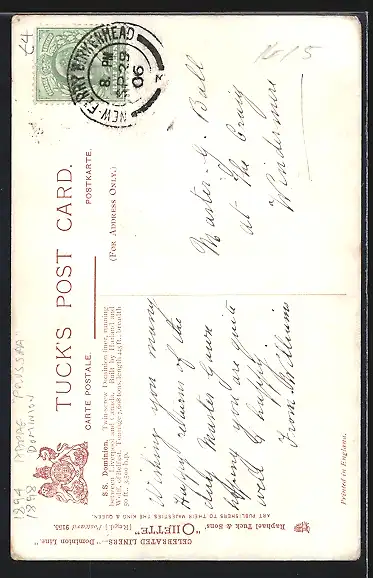 £4
NEW-FERRY BIRKENHEAD
8. PM
SP 29
06
16/5
TUCK'S POST CARD.
CARTE POSTALE.
POSTKARTE.
(FOR ADDRESS ONLY.)
1894 PRUSSIA
1898 DOMINION
S.S. Dominion. Twin-screw Dominion liner, running
between Liverpool and Canada. Built by Harland and
Wolff of Belfast.
Wishing you many
Happy returns of the
day Master Gawn
hoping you are quite
well & happy.
From
Master G. Ball
at The Craig
Windermere
CELEBRATED LINERS—"Dominion Line."
Raphael Tuck & Sons' "OILETTE" [Regd.] Postcard 9155.
ART PUBLISHERS TO THEIR MAJESTIES THE KING & QUEEN.
Printed in England.